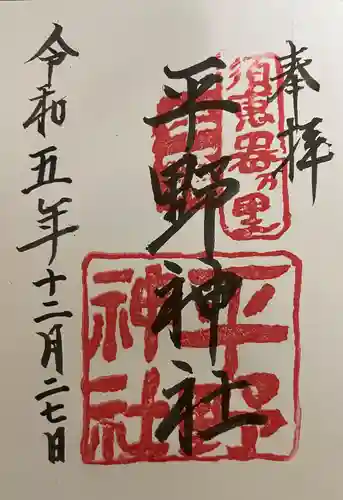 奉拝
須恵器の里
平野神社
平野神社
令和五年十二月二七日